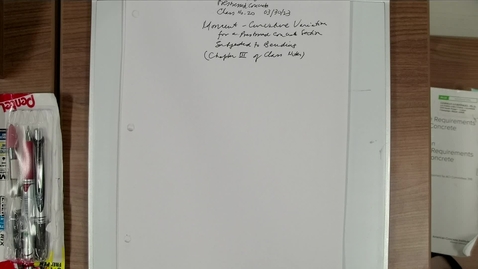 Prestressed Concrete
Class No. 20 03/30/23
Moment - Curvature Variation
for a Prestressed Concrete Section
Subjected to Bending
(Chapter III of Class Notes)
Pentel
Requirements
Concrete
Requirements
Concrete